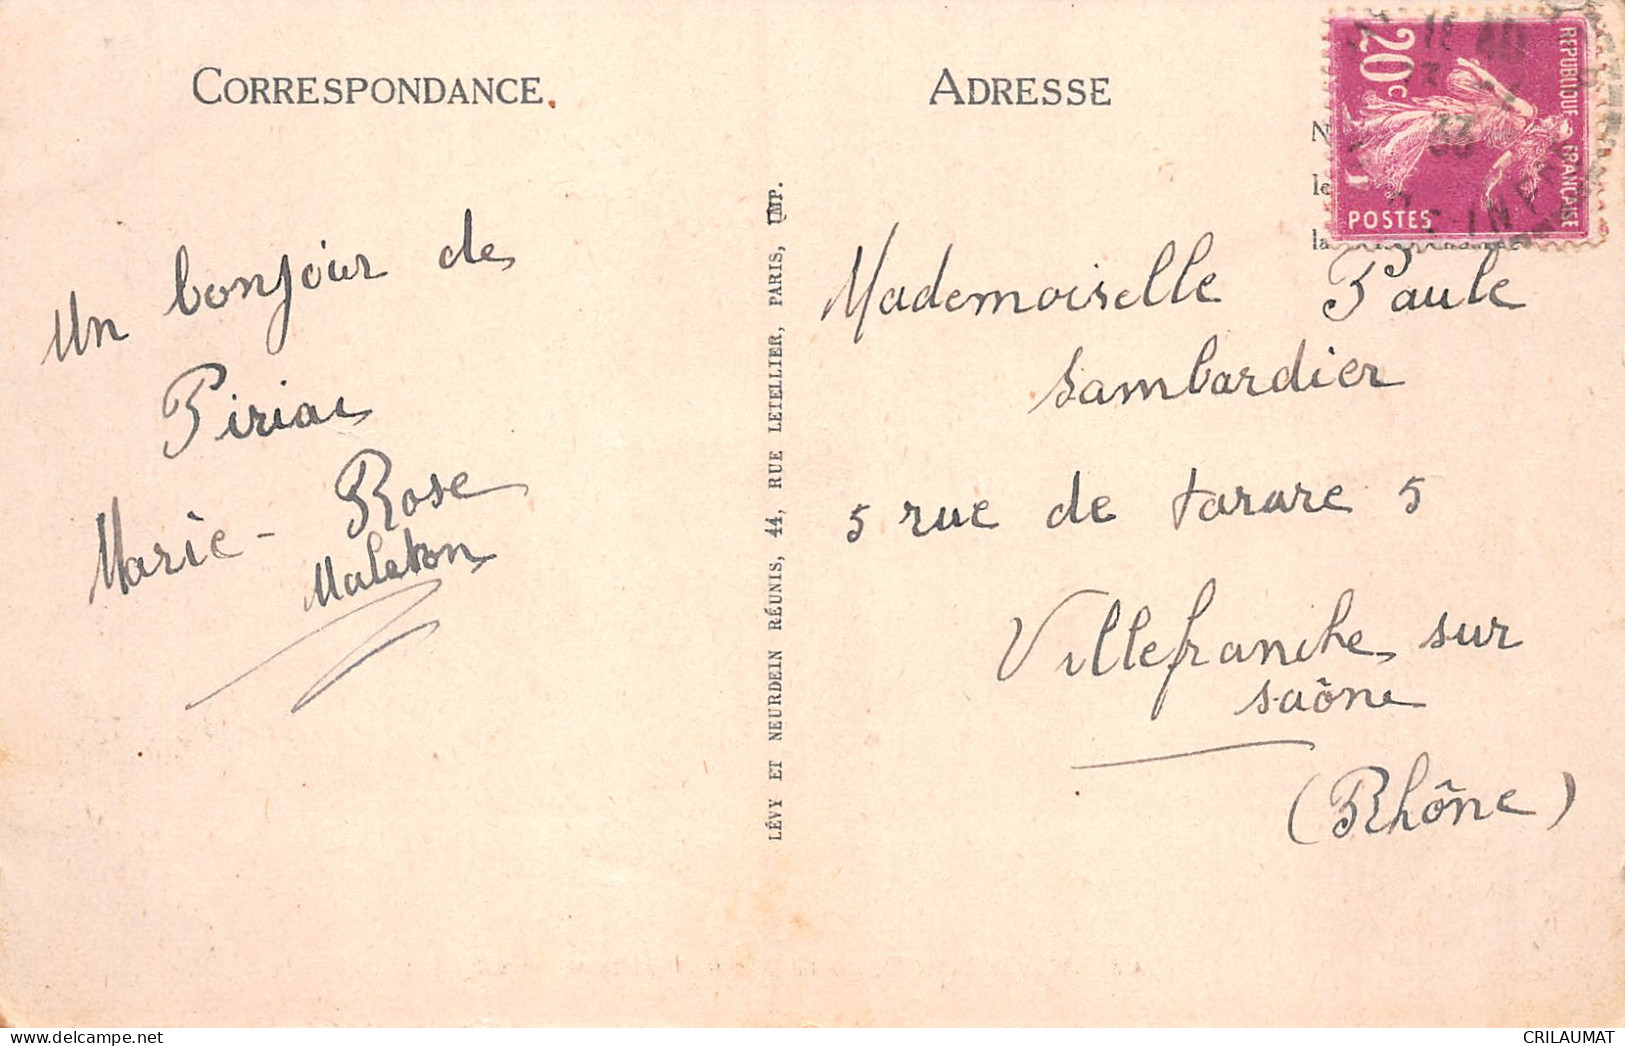 CORRESPONDANCE
ADRESSE
REPUBLIQUE FRANÇAISE
20c
POSTES
33
un bonjour de
Piriac
Marie-Rose
Malaton
LÉVY ET NEURDEIN RÉUNIS, 44, RUE LETELLIER, PARIS, IMP.
Mademoiselle Paule
Sambardier
5 rue de tarare 5
Villefranche sur
saône
(Rhône)
CRILAUMAT